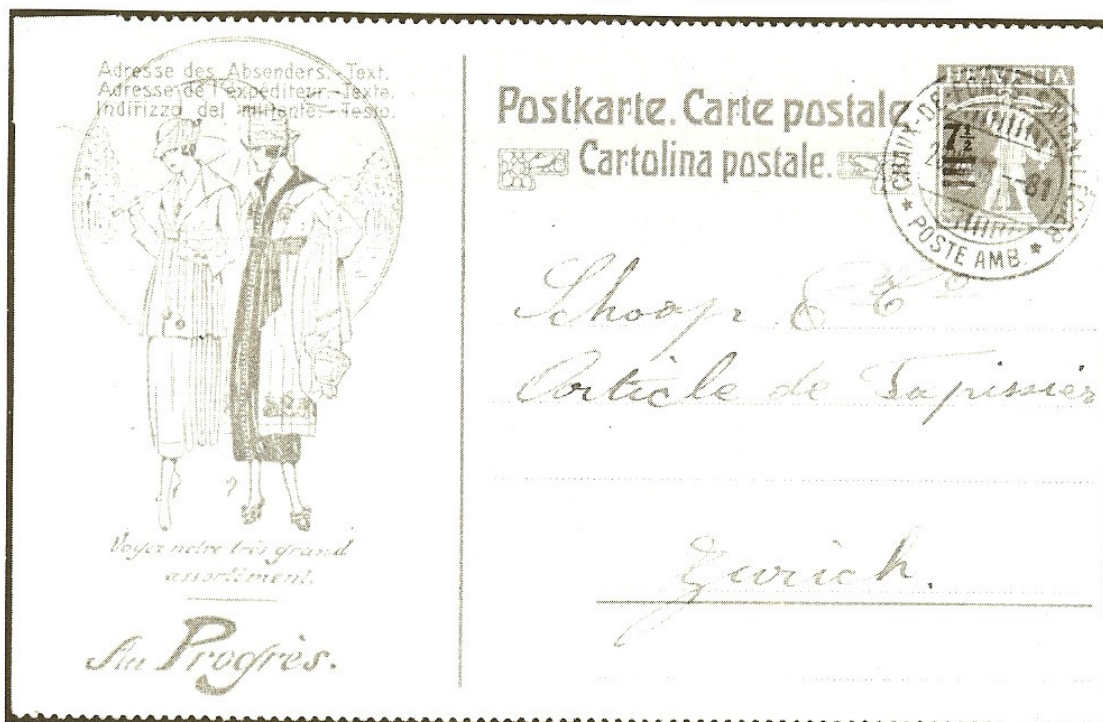 Adresse des Absenders.-Text.
Adresse de l'expéditeur.-Texte.
Indirizzo del mittente.-Testo.
Voyez notre très grand
assortiment.
Au Progrès.
Postkarte. Carte postale
Cartolina postale.
HELVETIA
7½
CHAUX-DE-FONDS
POSTE AMB.
Schoop & Co
Article de Tapissier
Zurich.